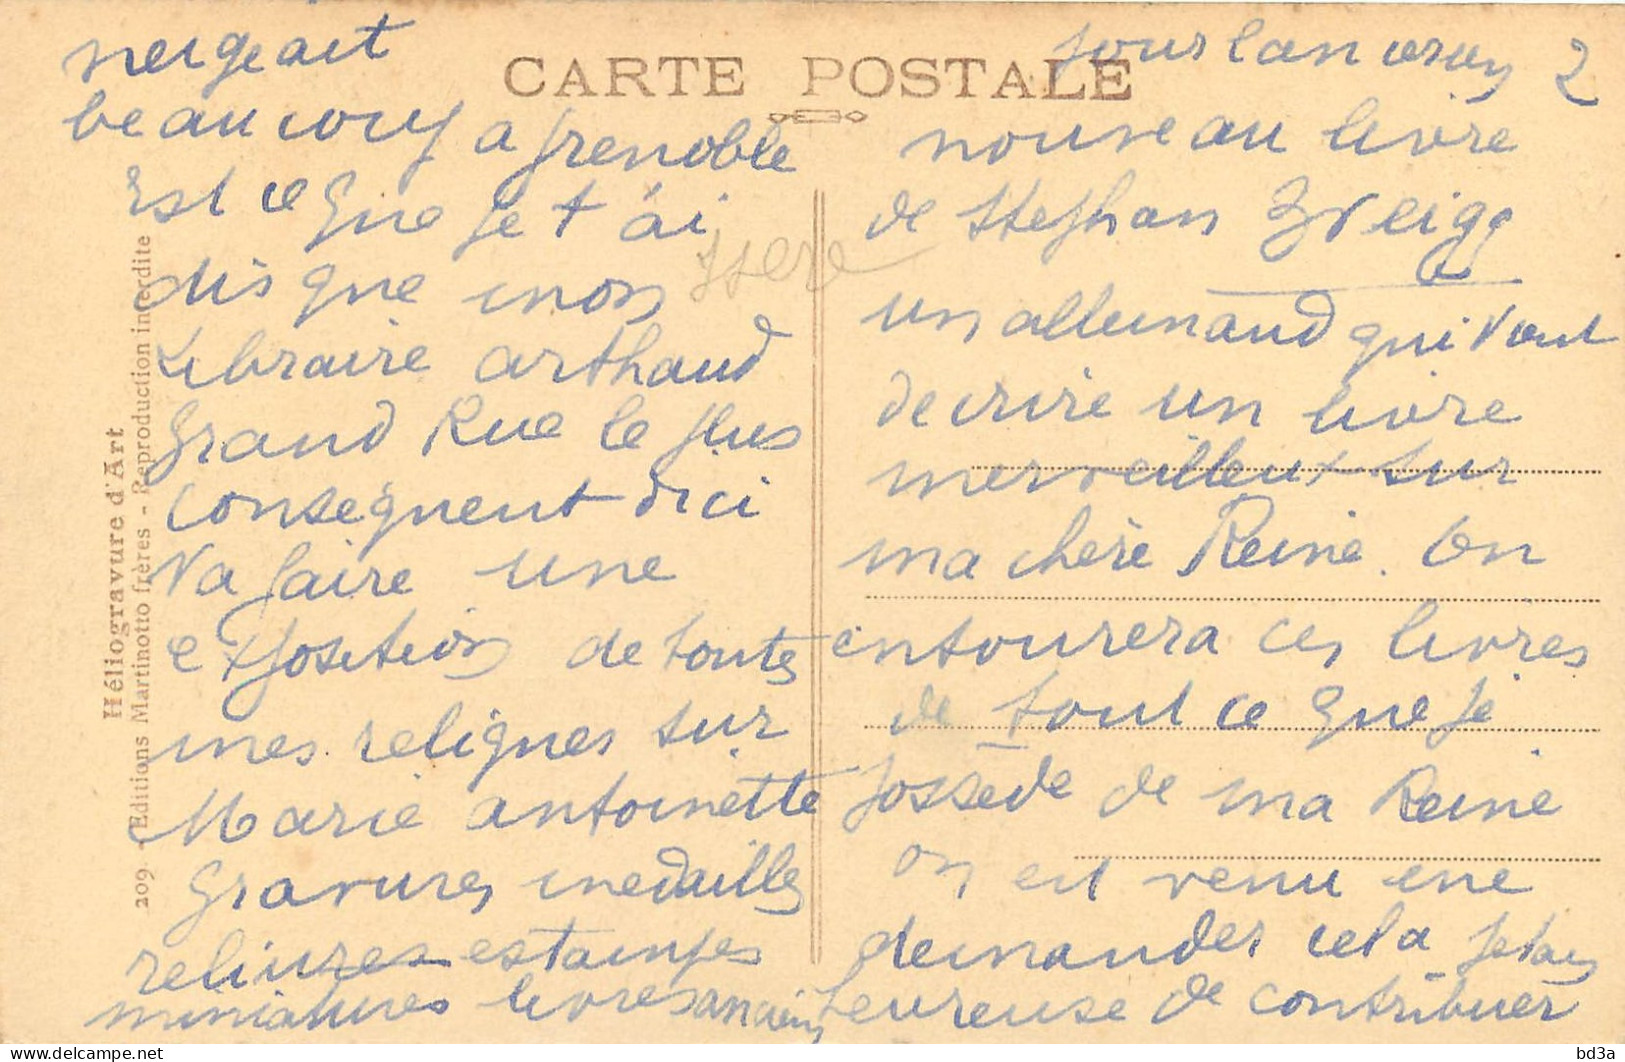 neigeait
beaucoup a grenoble
Est ce que je t'ai
dis que mon
Libraire arthaud
Grand Rue le plus
conseqnent dici
va faire une
exposition de toutes
mes reliques sur
Marie antoinette
Gravures medailles
reliures estampes
miniatures livres anciens
pour lancer un 2
nouveau livre
de Stephan Zveigg
un allemand qui vient
decrire un livre
merveilleux sur
ma chère Reine. On
entourera ces livres
de tout ce que je
possede de ma Reine
on est venu me
demander cela jetais
heureuse de contribuer
CARTE POSTALE
Isere
Héliogravure d'Art
209 - Editions Martinotto frères - Reproduction interdite
www.delcampe.net
bd3a